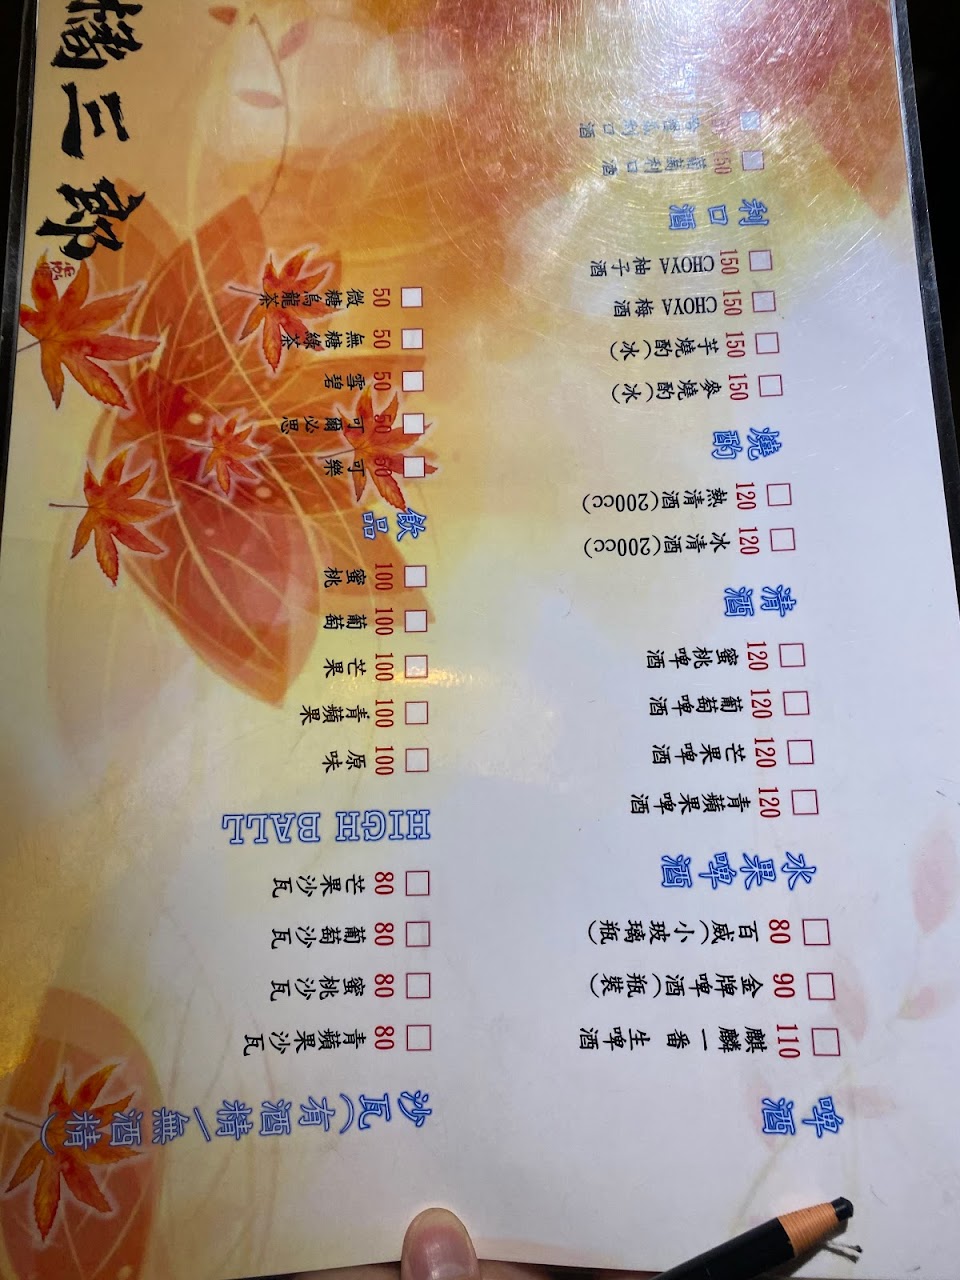 啤酒
110 麒麟一番生啤酒
90 金牌啤酒(瓶裝)
80 百威(小玻璃瓶)
水果啤酒
120 青蘋果啤酒
120 芒果啤酒
120 葡萄啤酒
120 蜜桃啤酒
清酒
120 冰清酒(200cc)
120 熱清酒(200cc)
燒酌
150 麥燒酌(冰)
150 芋燒酌(冰)
150 CHOYA 梅酒
150 CHOYA 柚子酒
利口酒
利口酒
利口酒
沙瓦(有酒精/無酒精)
80 青蘋果沙瓦
80 蜜桃沙瓦
80 葡萄沙瓦
80 芒果沙瓦
HIGH BALL
100 原味
100 青蘋果
100 芒果
100 葡萄
100 蜜桃
飲品
50 可樂
50 可爾必思
50 雪碧
50 無糖綠茶
50 微糖烏龍茶
三郎